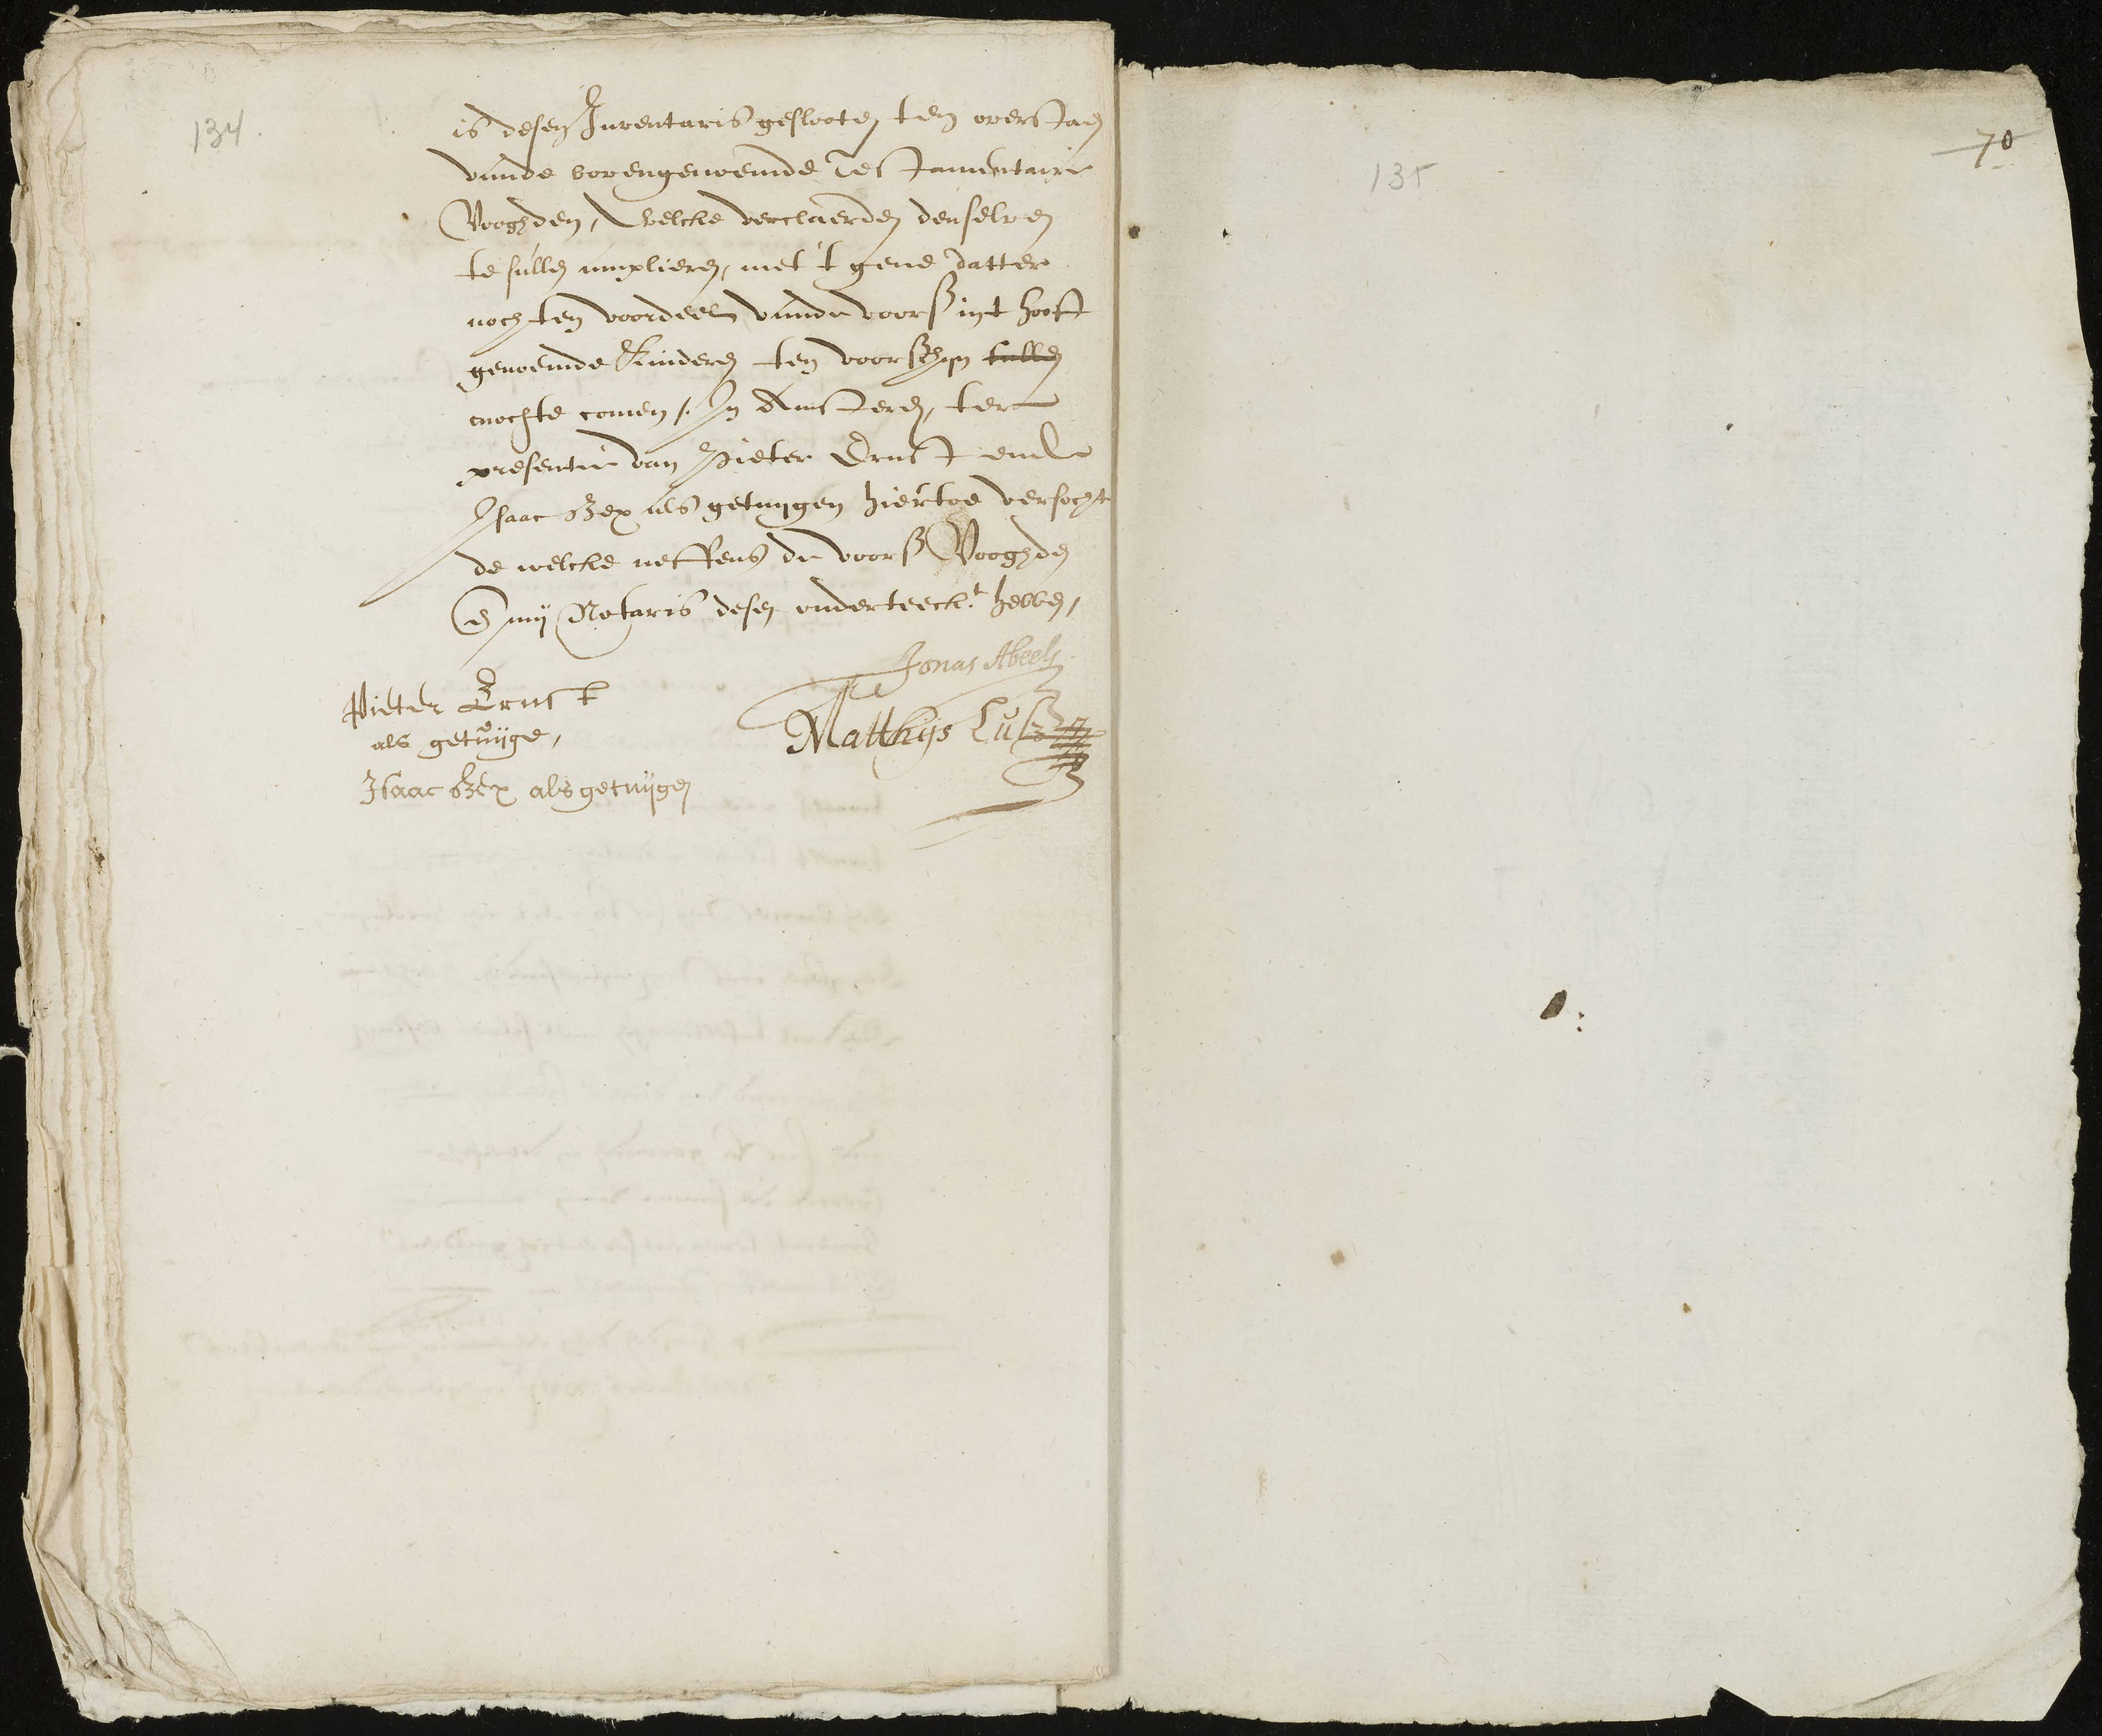 134.
is desen Inventaris geslooten ten overstaen
vande vorengenoemde Testamentaire
Vooghden, welcke verclaerden denselven
te sullen amplieren, met 't gene datter
noch ten voordeel vande voors int hooft
genoemde kinderen ten voorschijn sullen
mochte comen /. In Amsterd, ter
presentie van Pieter Ernst ende
Isaac Bex als getuijgen hiertoe versocht
de welcke neffens de voors Vooghden
en mij Notaris desen onderteeckt hebben,
Jonas Abeels
Pieter Ernst
als getuijge,
Matthijs
Isaac Bex als getuijgen
135
70